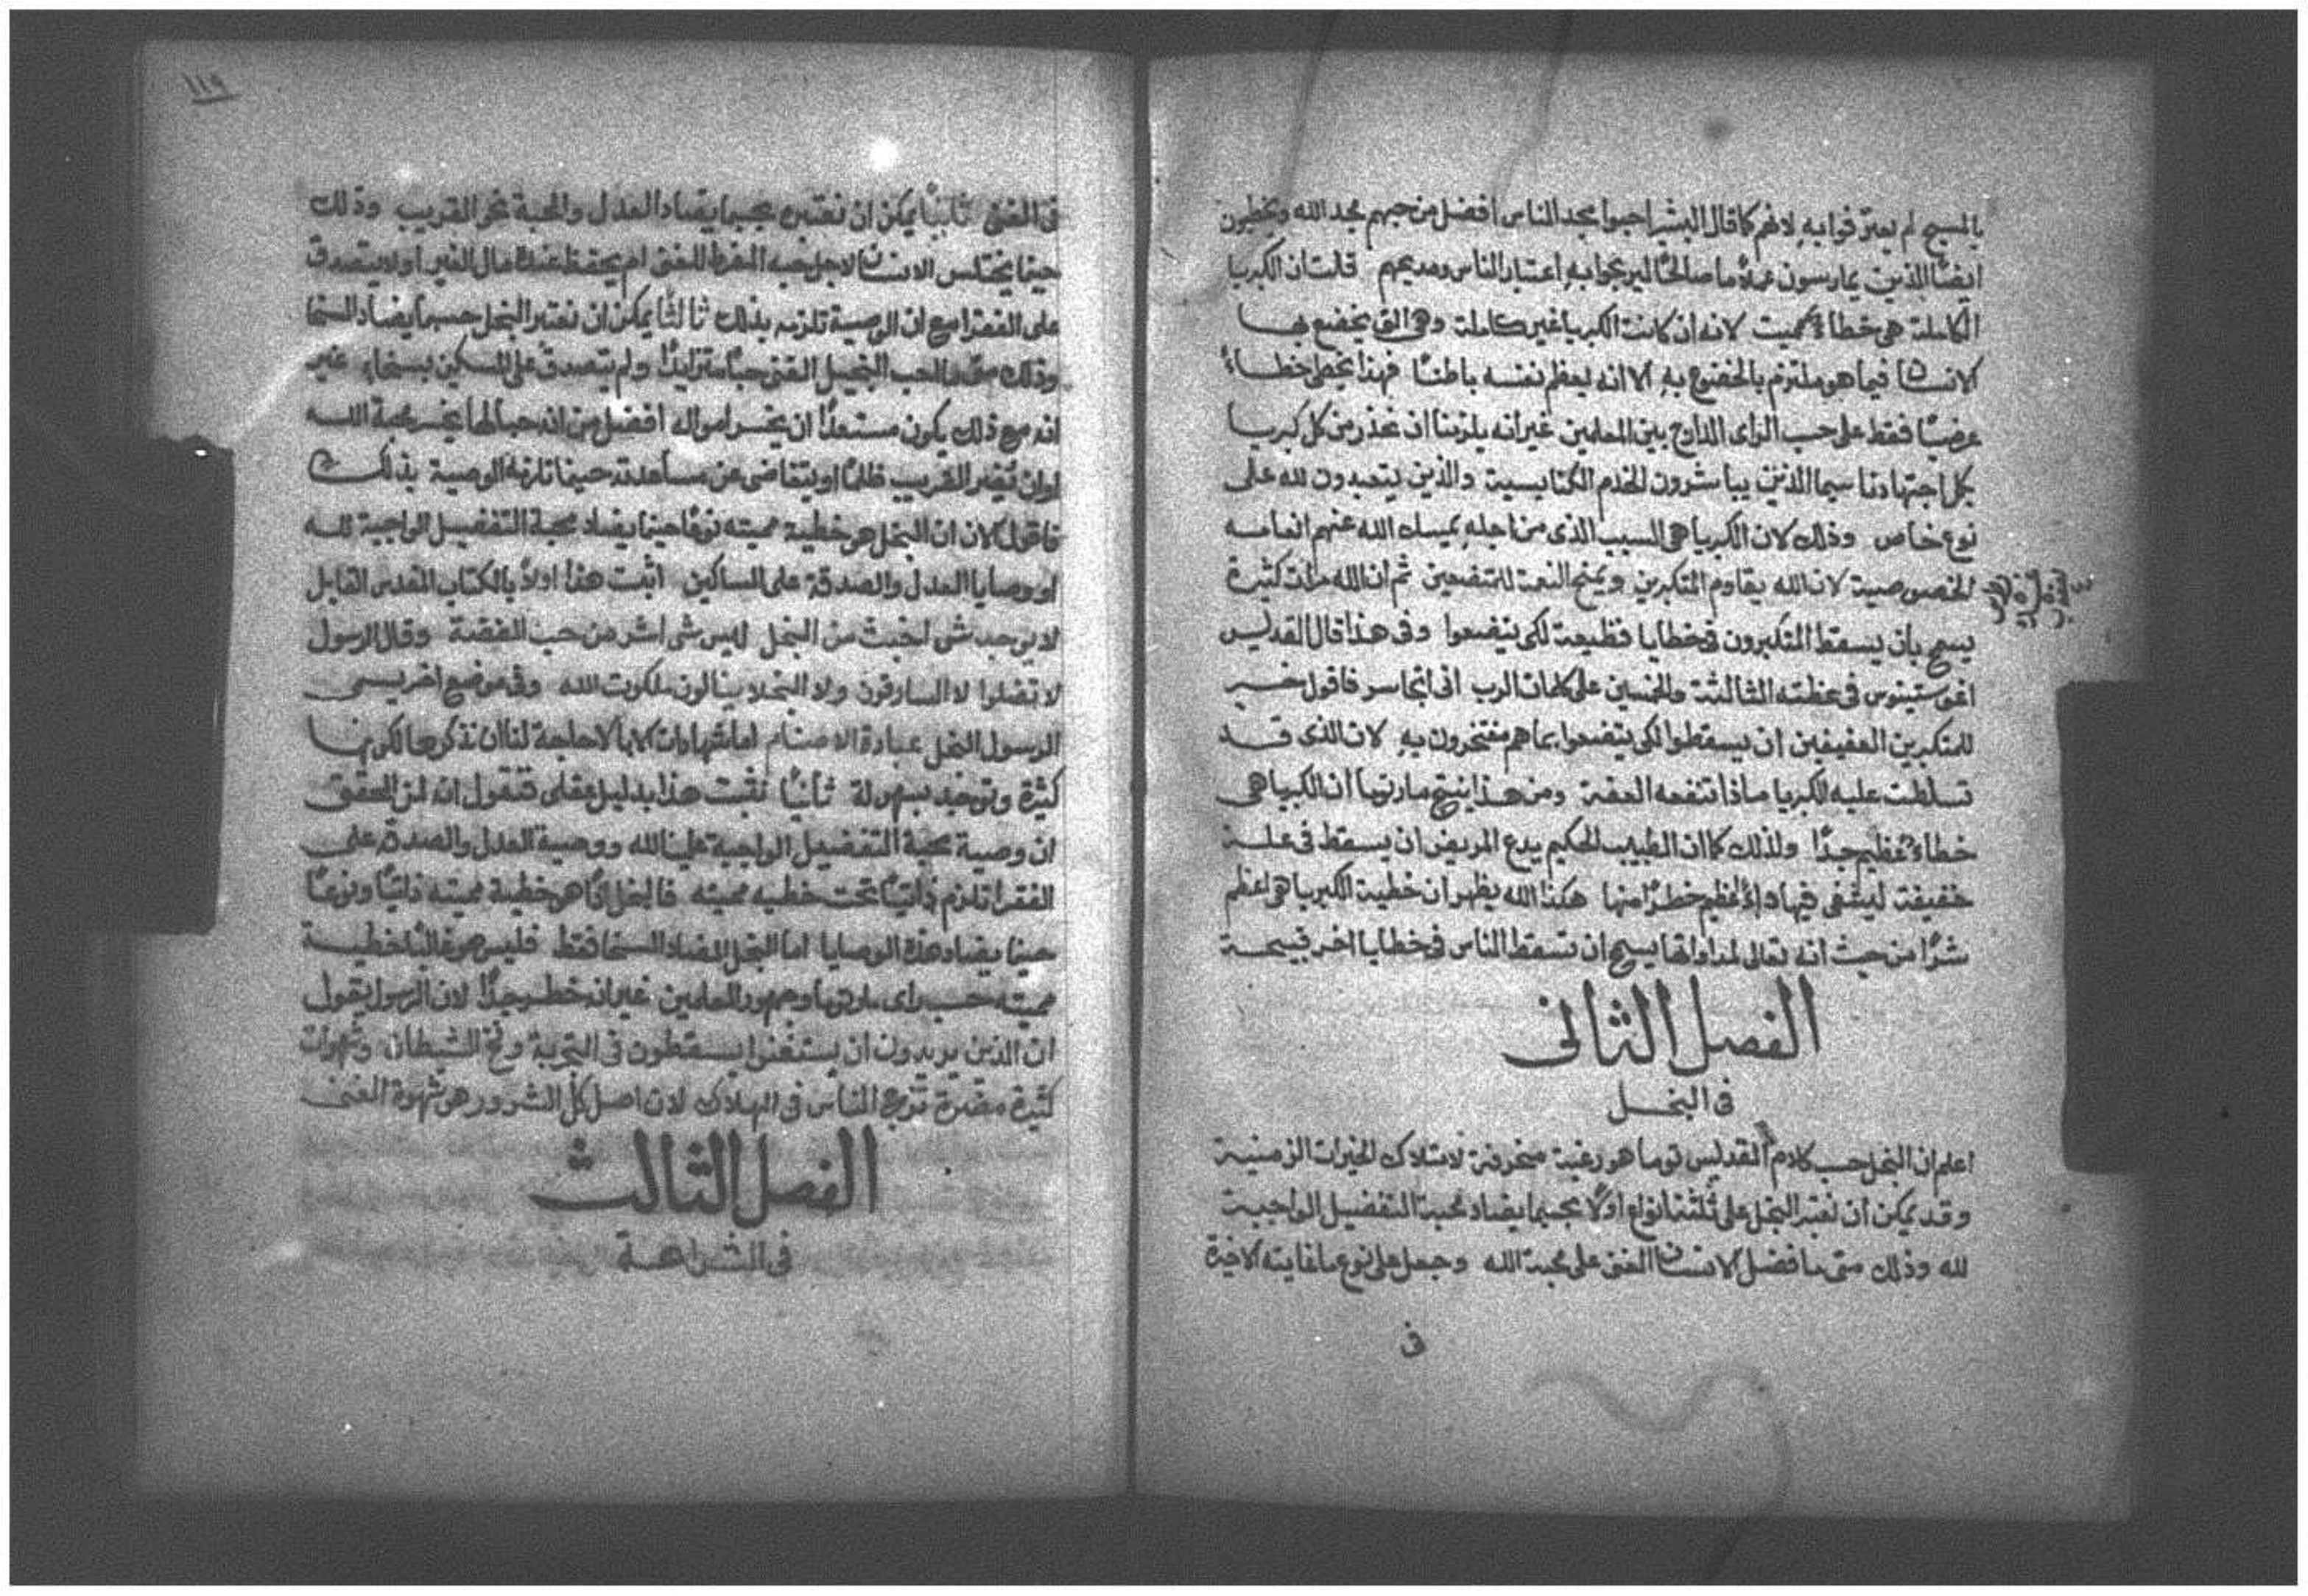 بالمسيح لم يعترفوا به لانهم كما قال البشير احبوا مجد الناس افضل من حبهم مجد الله ويخطون
ايضًا الذين يمارسون عملًا ما صالحًا ليربحوا به اعتبار الناس ومديحهم قلت ان الكبريا
الكاملة هي خطاء مميت لانه ان كانت الكبريا غير كاملة وهي التي يخضع بها
الانسان فيما هو ملتزم بالخضوع به الا انه يعظم نفسه باطنًا فهذا يخطى خطاءً
عرضيًا فقط على حسب الراى الدارج بين المعلمين غير انه يلزمنا ان نحذر من كل كبريا
بكل اجتهادنا سيما الذين يباشرون الخدم الكنايسية والذين يتعبدون لله على
نوع خاص وذلك لان الكبريا هي السبب الذي من اجله يمسك الله عنهم انعامه
الخصوصية لان الله يقاوم المتكبرين ويمنح النعمة للمتضعين ثم ان الله مرات كثيرة
يسمح بان يسقط المتكبرون في خطايا فظيعة لكي يتضعوا وفي هذا قال القديس
اغوستينوس في عظته الثالثة والخمسين على كلمات الرب اني اتجاسر فاقول خير
للمتكبرين العفيفين ان يسقطوا لكي يتضعوا بما هم مفتخرون به لان الذي قد
تسلطت عليه الكبريا ماذا تنفعه العفة ومن هذا ينتج مارتوما ان الكبريا هي
خطاء عظيم جدًا ولذلك كما ان الطبيب الحكيم يدع المريض ان يسقط في علة
خفيفة ليشفى فيها داءً اعظم خطرًا منها هكذا الله يظهر ان خطية الكبريا هي اعظم
شرًا من حيث انه تعالى لمداواتها يسمح ان تسقط الناس في خطايا اخر قبيحة
الفصل الثاني
في البخل
اعلم ان البخل حسب كلام القديس توما هو رغبة منحرفة لامتلاك الخيرات الزمنية
وقد يمكن ان نعتبر البخل على ثلثة انواع اولًا بحسبما يضاد محبة التفضيل الواجبة
لله وذلك متى ما فضل الانسان الغنى على محبة الله وجعل على نوع ما غايته الاخيرة
في
١١٩
في الغنى ثانيًا يمكن ان نعتبره بحسبما يضاد العدل والمحبة نحو القريب وذلك
حينما يختلس الانسان لاجل حبه المفرط للغنى ام يحتفظ عنده مال الغير او لا يتصدق
على الفقرا مع ان الوصية تلزمه بذلك ثالثًا يمكن ان نعتبر البخل حسبما يضاد السخا
وذلك متى ما احب البخيل الغنى حبًا متزايدًا ولم يتصدق على المسكين بسخاء غير
انه مع ذلك يكون مستعدًا ان يخسر امواله افضل من انه حبًا لها يخسر محبة الله
او ان يضر القريب ظلمًا او يتقاضى عن مساعدته حينما تلزمه الوصية بذلك
فاقول الان ان البخل هو خطية مميته نوعًا حينما يضاد محبة التفضيل الواجبة لله
او وصايا العدل والصدقة على المساكين اثبت هذا اولًا بالكتاب المقدس القايل
لا يوجد شي اخبث من البخل ليس شي اشر من حب الفضة وقال الرسول
لا تضلوا لا السارقون ولا البخلا ينالون ملكوت الله وفي موضع اخر يسمي
الرسول البخل عبادة الاصنام اما شهادات الابا لا حاجة لنا ان نذكرها لكونها
كثيرة وتوجد بسهولة ثانيًا نثبت هذا بدليل عقلي فنقول انه لمن المحقق
ان وصية محبة التفضيل الواجبة علينا لله ووصية العدل والصدقة على
الفقرا تلزم ذاتيًا تحت خطيه مميته فالبخل اذًا هو خطية مميته ذاتيًا ونوعًا
حينما يضاد هذه الوصايا اما البخل المضاد السخا فقط فليس هو غالبًا خطية
مميته حسب راى مارتوما وجمهور المعلمين غير انه خطر جدًا لان الرسول يقول
ان الذين يريدون ان يستغنوا يسقطون في التجربة وفخ الشيطان وشهوات
كثيرة مضرة تزج الناس في الهلاك لان اصل كل الشرور هو شهوة الغنى
الفصل الثالث
في الشراهة